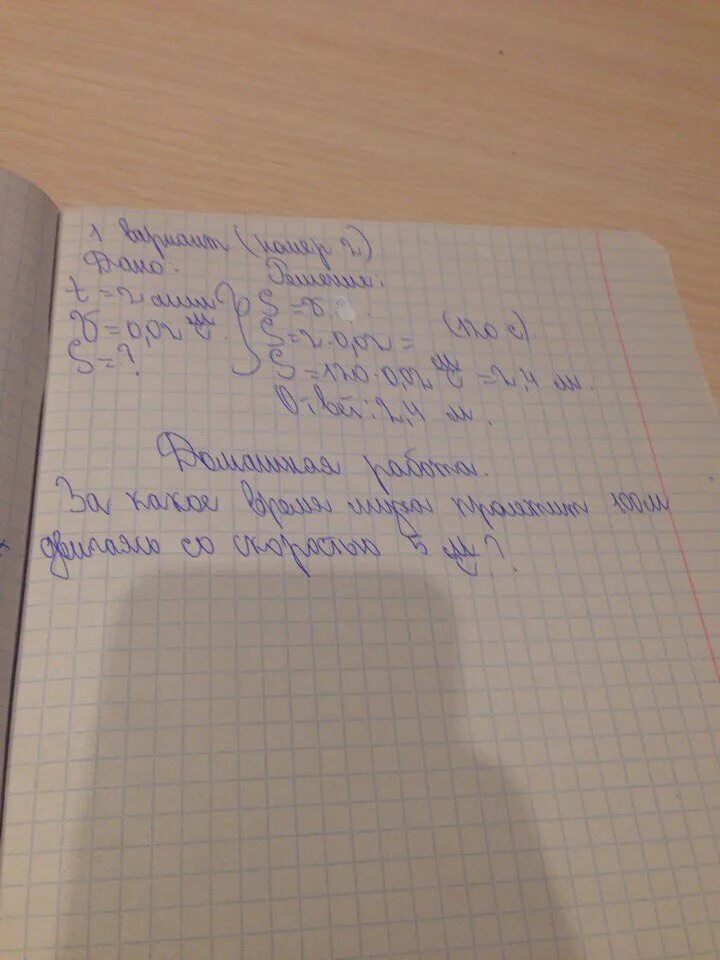 1 вариант (номер 2)
Дано: Решение:
t = 2 мин S = υ .
υ = 0,02 м/с S = 2 · 0,02 = (120 с)
S = ? S = 120 · 0,02 м/с = 2,4 м.
Ответ: 2,4 м.
Домашняя работа.
За какое время муха пролетит 100м
двигаясь со скоростью 5 м/с?